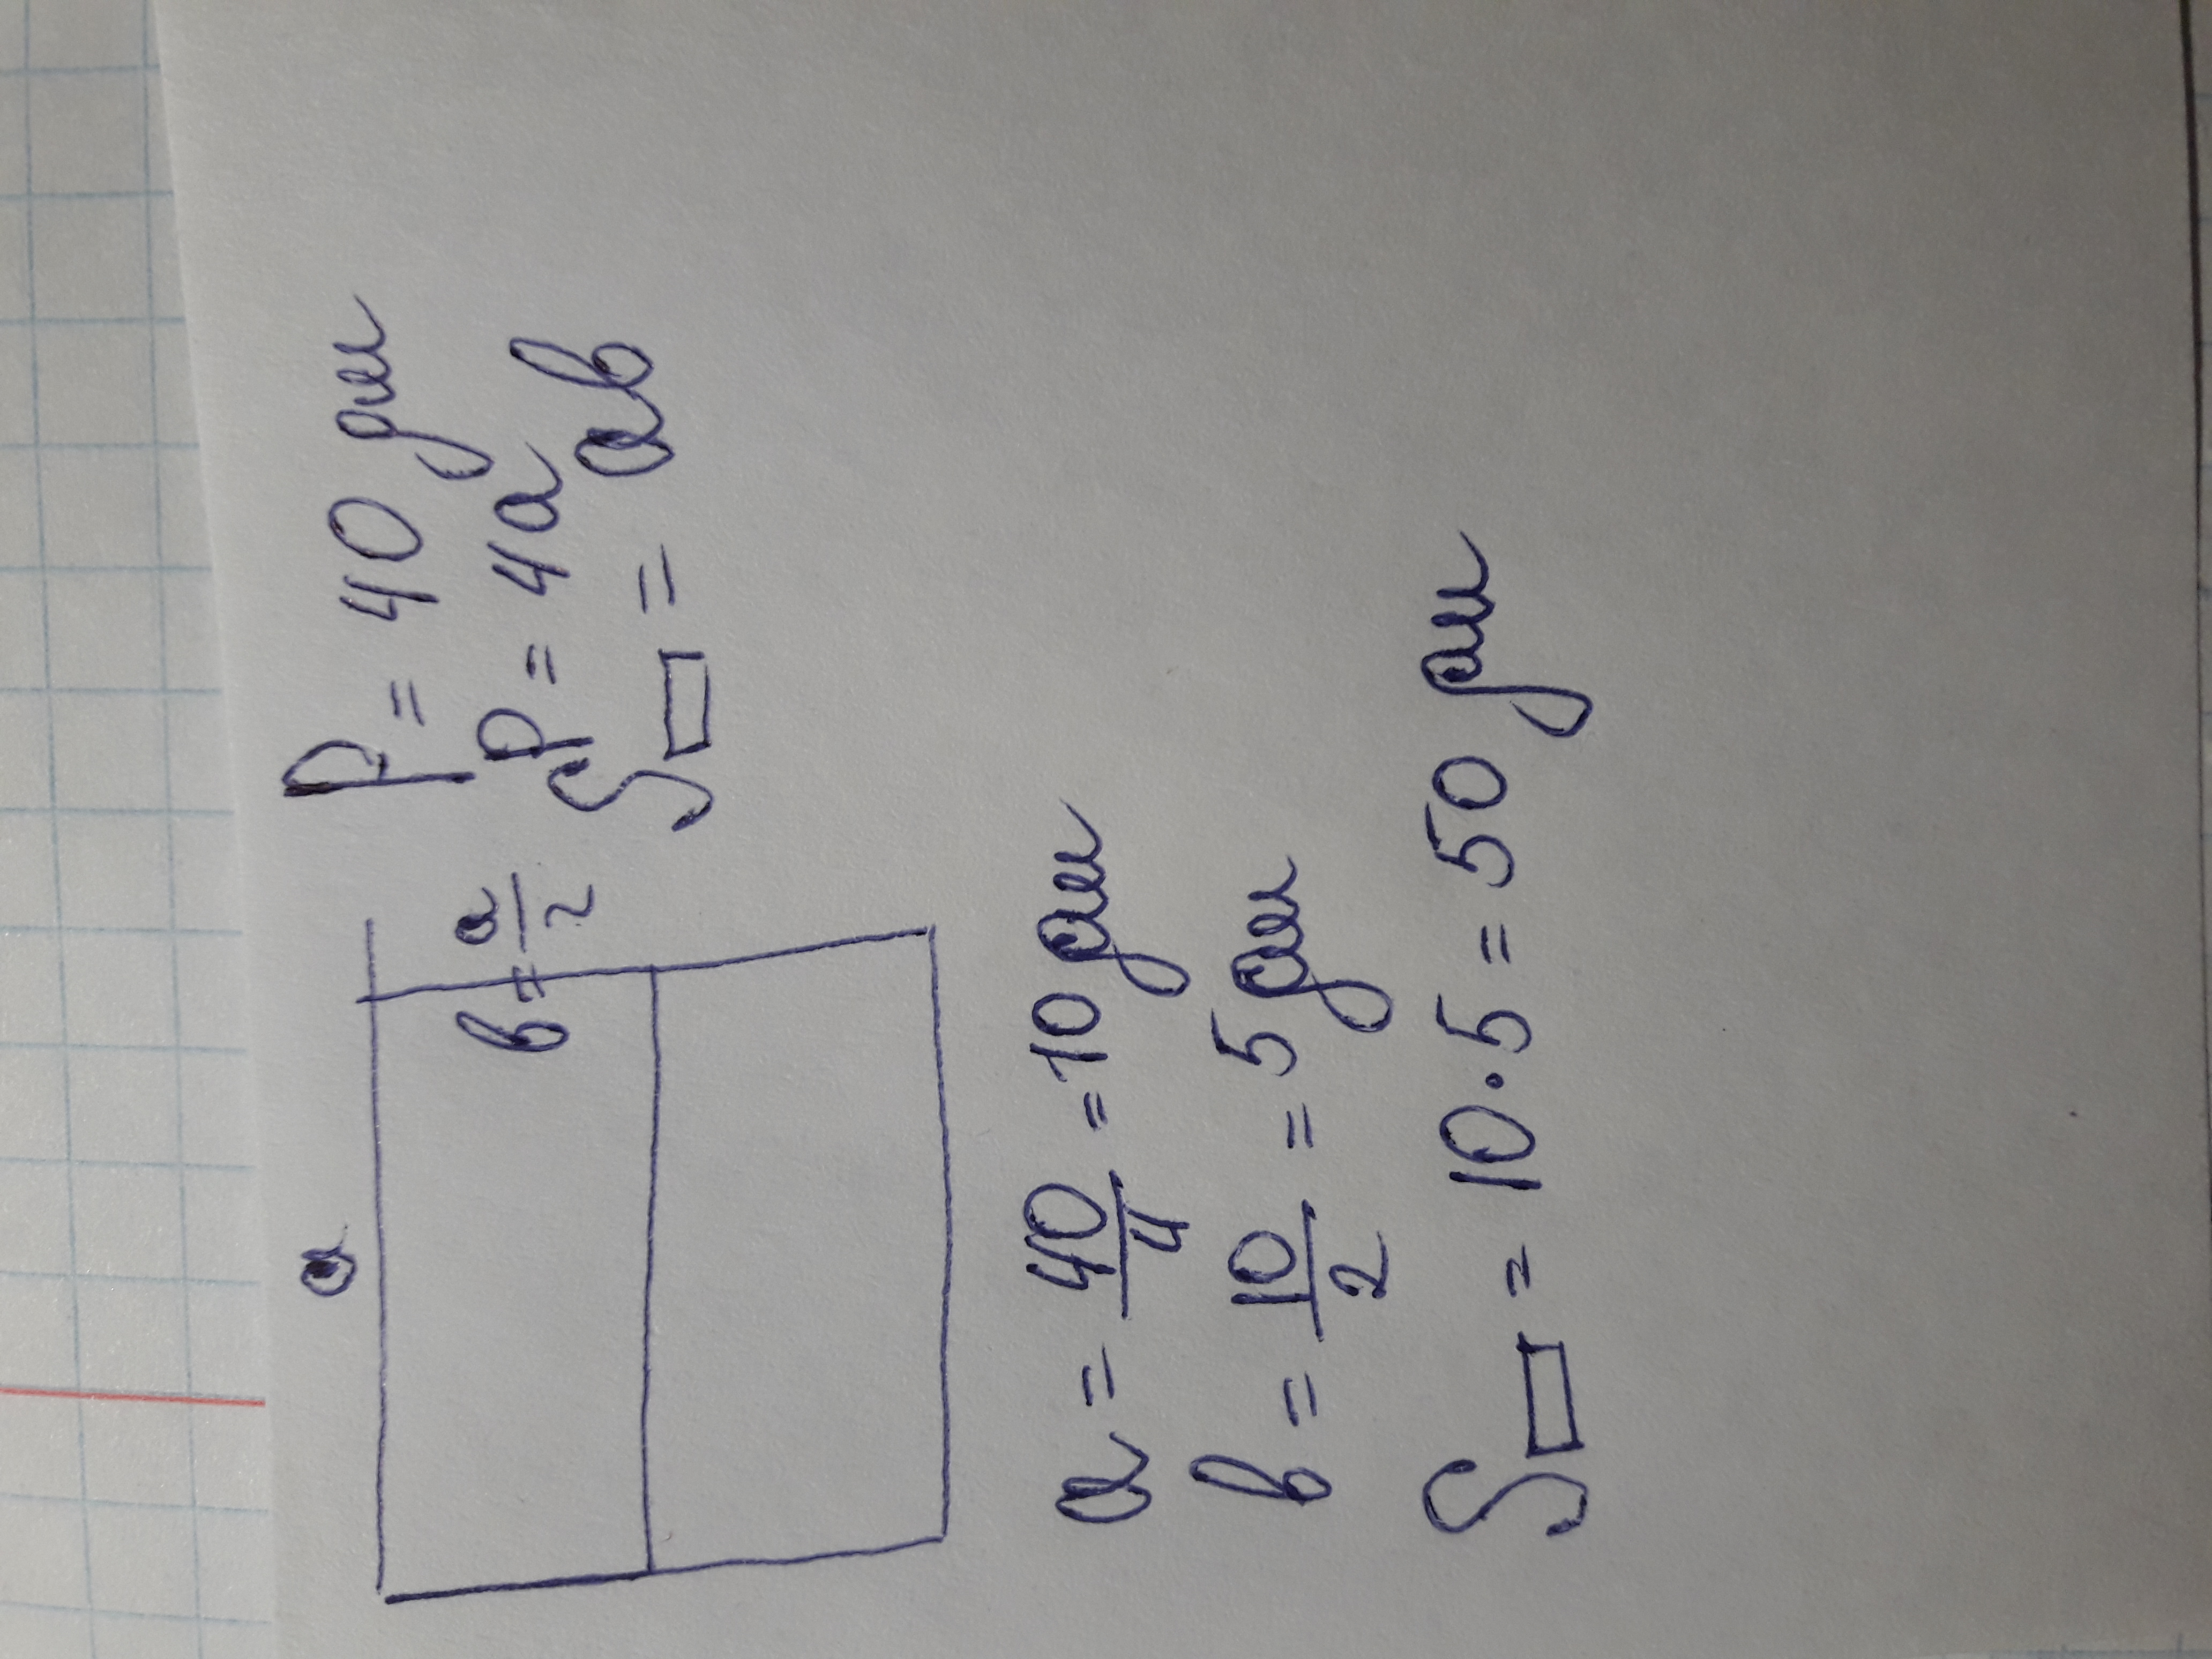 a
в = a/2
P = 40 дм
P = 4a
S▭ = aв
a = 40/4 = 10 дм
в = 10/2 = 5 дм
S▭ = 10 · 5 = 50 дм